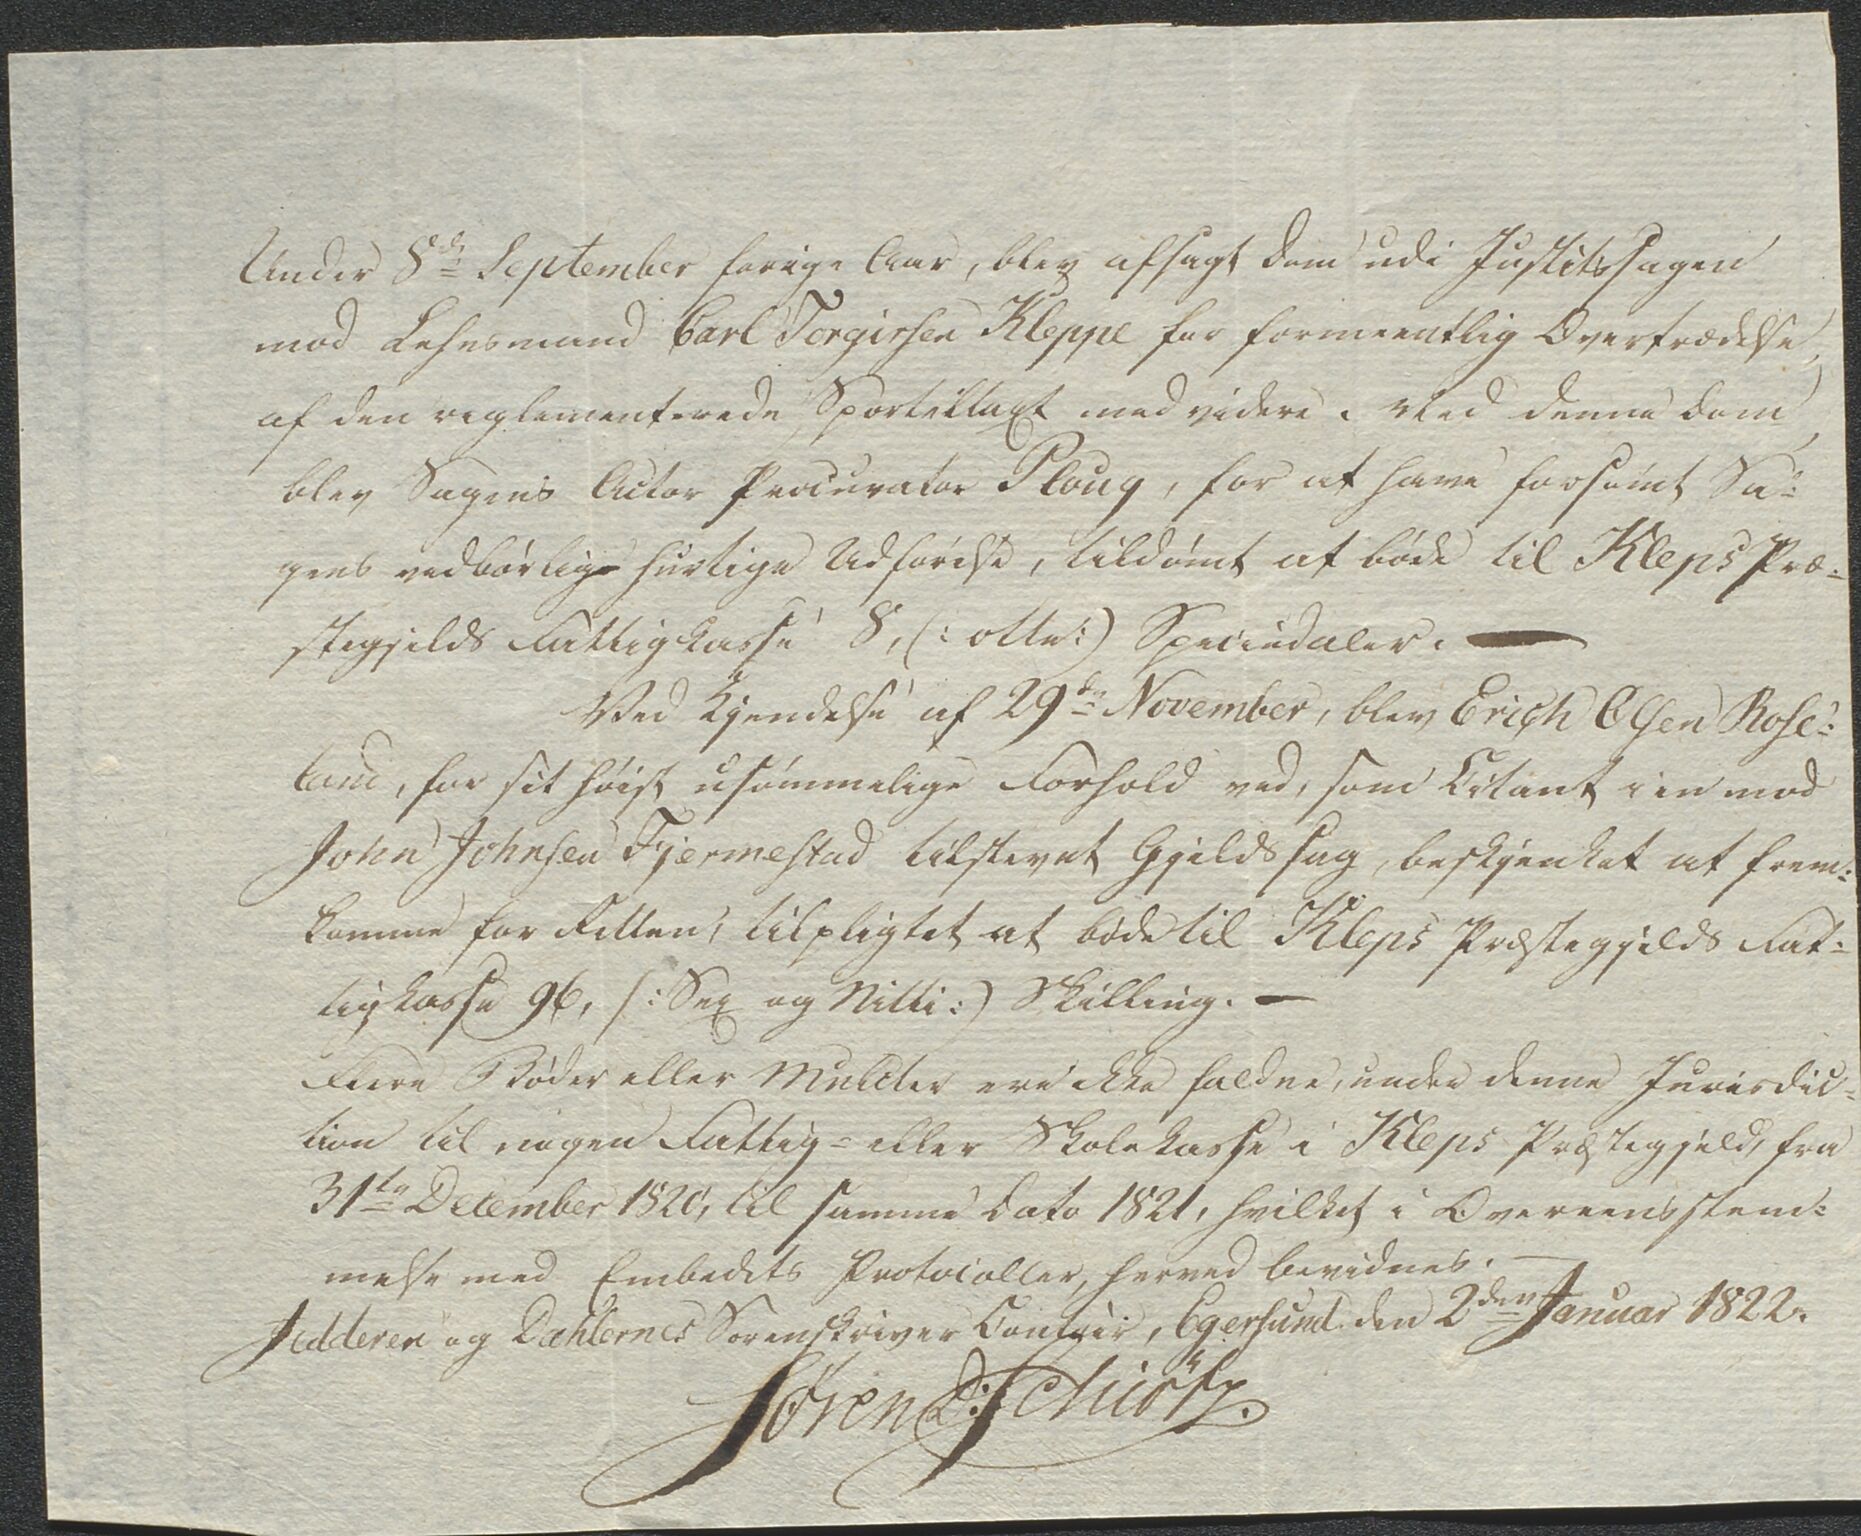 Under 8de September forige Aar, blev afsagt Dom udi Justitssagen
mod Lehnsmand Carl Torgersen Kleppe for formeentlig Overtrædelse
af den reglementerede Sporteltaxt med videre. Ved denne Dom
blev Sagens Actor Procurator Ploug, for at have forsømt Sa-
gens vedbørlige hurtige Udførelse, tildømt at bøde til Kleps Præ-
stegjelds Fattigkasse 8, (: otte :) Speciedaler. —
Ved Kjendelse af 29de November, blev Erich Olsen Rose-
land, for sit høist usømmelige Forhold ved, som Citant i en mod
John Johnsen Tjermestad tilstevnt Gjeldssag, beskjenket at frem-
komme for Retten, tilpligtet at bøde til Kleps Præstegjelds Fat-
tigkasse 96, (: Sex og Nitti :) Skilling. —
Flere Bøder eller Mulcter ere ikke faldne, under denne Jurisdic-
tion til nogen Fattig- eller Skolekasse i Kleps Præstegjeld, fra
31te December 1820, til samme Dato 1821, hvilket i Overeensstem-
melse med Embedets Protocoller, herved bevidnes. —
Jedderen og Dahlernes Sorenskriver Contoir, Egersund den 2den Januar 1822.
Søren D: Schiøtz.